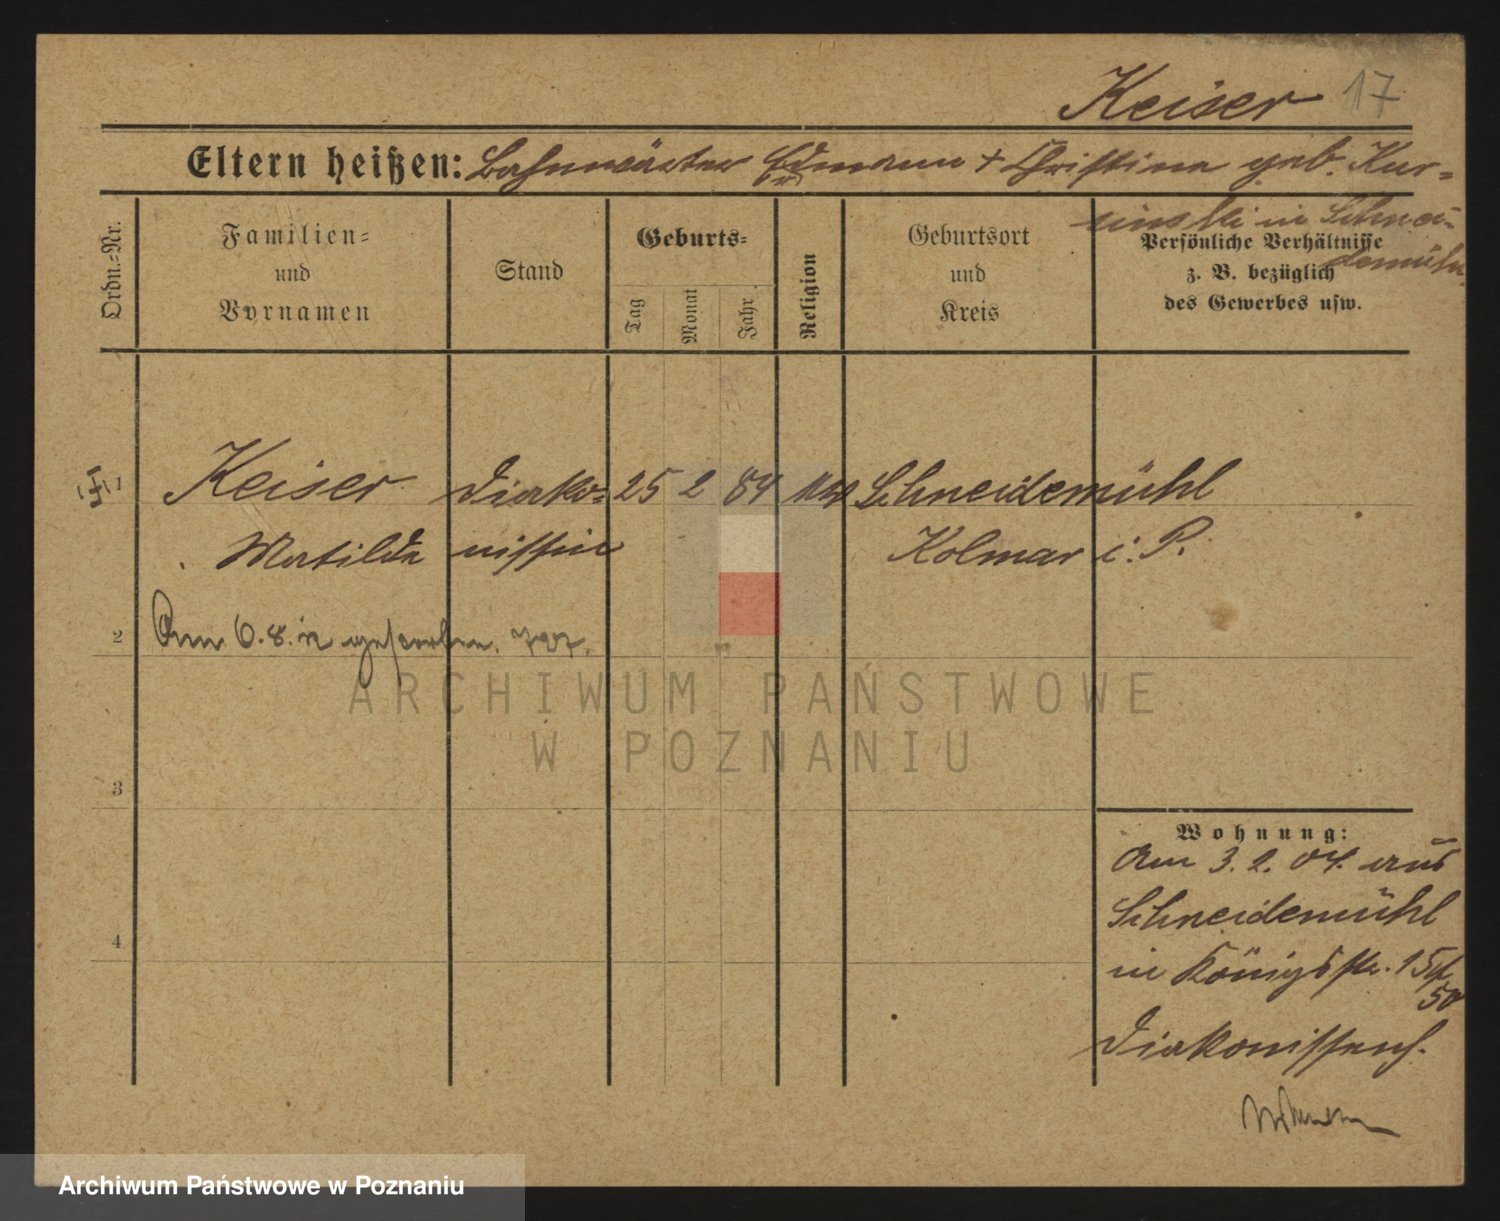 Keiser 17
Eltern heißen: Bahnwärter Erdmann + Christina geb. Kur=
sinski in Schnei=
demühl
Ordn.=Nr.
Familien=
und
Vornamen
Stand
Geburts=
Tag
Monat
Jahr
Religion
Geburtsort
und
Kreis
Persönliche Verhältnisse
z. B. bezüglich
des Gewerbes usw.
1 Keiser Diako= 25 2 84 Schneidemühl
Matilde nissin Kolmar i. P.
2 Am 6.8.12 gestorben. 727.
ARCHIWUM PAŃSTWOWE
W POZNANIU
3
Wohnung:
Am 3. 2. 04. aus
Schneidemühl
4
in Königsstr. 15
Diakonissenh.
Archiwum Państwowe w Poznaniu